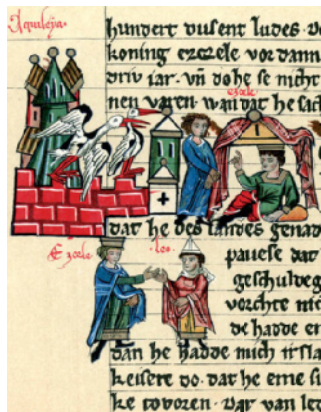 Aquileya
hundert dusent ludes. D
koning ezzele vor dann
driv iar. vn do he se nicht
nen varen. wan dat he sach
ezele
dat he des landes genad
Ezcele leo
pauese dat
geschuldeg
vorchte nic
he hadde en
dan he hadde mich irsla
keisere do. dat he eme si
ke to voren. Dar van let